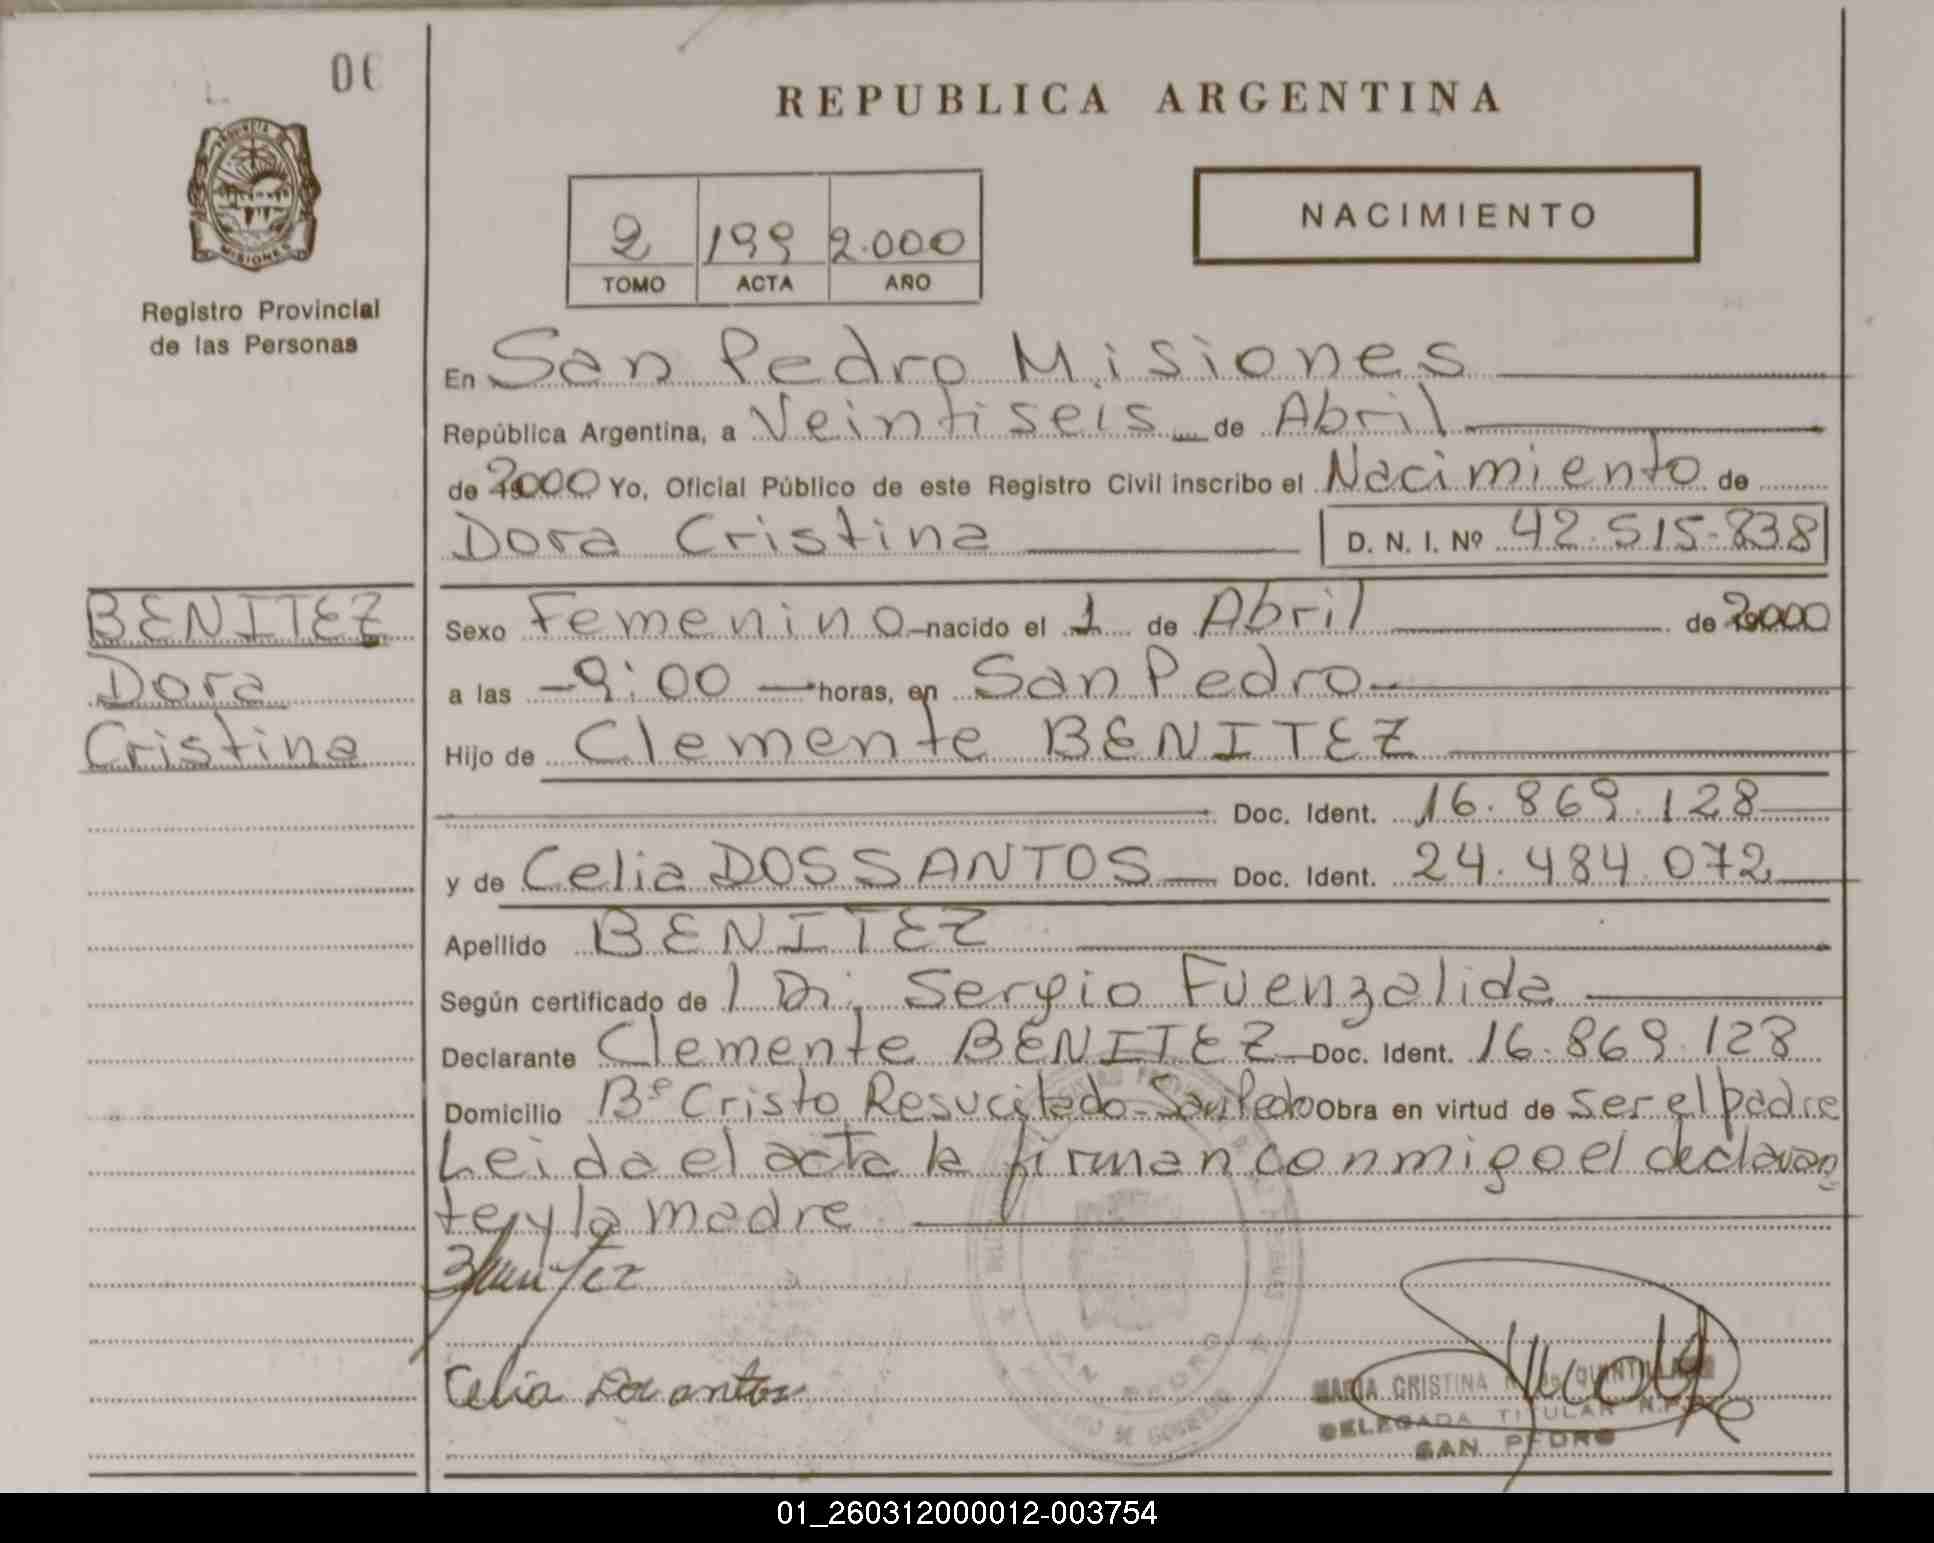 06
REPUBLICA ARGENTINA
NACIMIENTO
2 199 2.000
TOMO ACTA AÑO
MISIONES
Registro Provincial
de las Personas
En San Pedro Misiones
República Argentina, a Veintiseis de Abril
de 2000 Yo, Oficial Público de este Registro Civil inscribo el Nacimiento de
Dora Cristina D. N. I. Nº 42.515.838
BENITEZ
Dora
Cristina
Sexo Femenino nacido el 1 de Abril de 2000
a las 9:00 horas, en San Pedro
Hijo de Clemente BENITEZ
Doc. Ident. 16.869.128
y de Celia DOS SANTOS Doc. Ident. 24.484.072
Apellido BENITEZ
Según certificado de Sergio Fuenzalida
Declarante Clemente BENITEZ Doc. Ident. 16.869.128
Domicilio Bº Cristo Resucitado - San Pedro Obra en virtud de ser el padre
Leida el acta la firman conmigo el declaran
te y la madre
Celia
SAN PEDRO
MARIA CRISTINA
DELEGADA TITULAR
SAN PEDRO
01_260312000012-003754